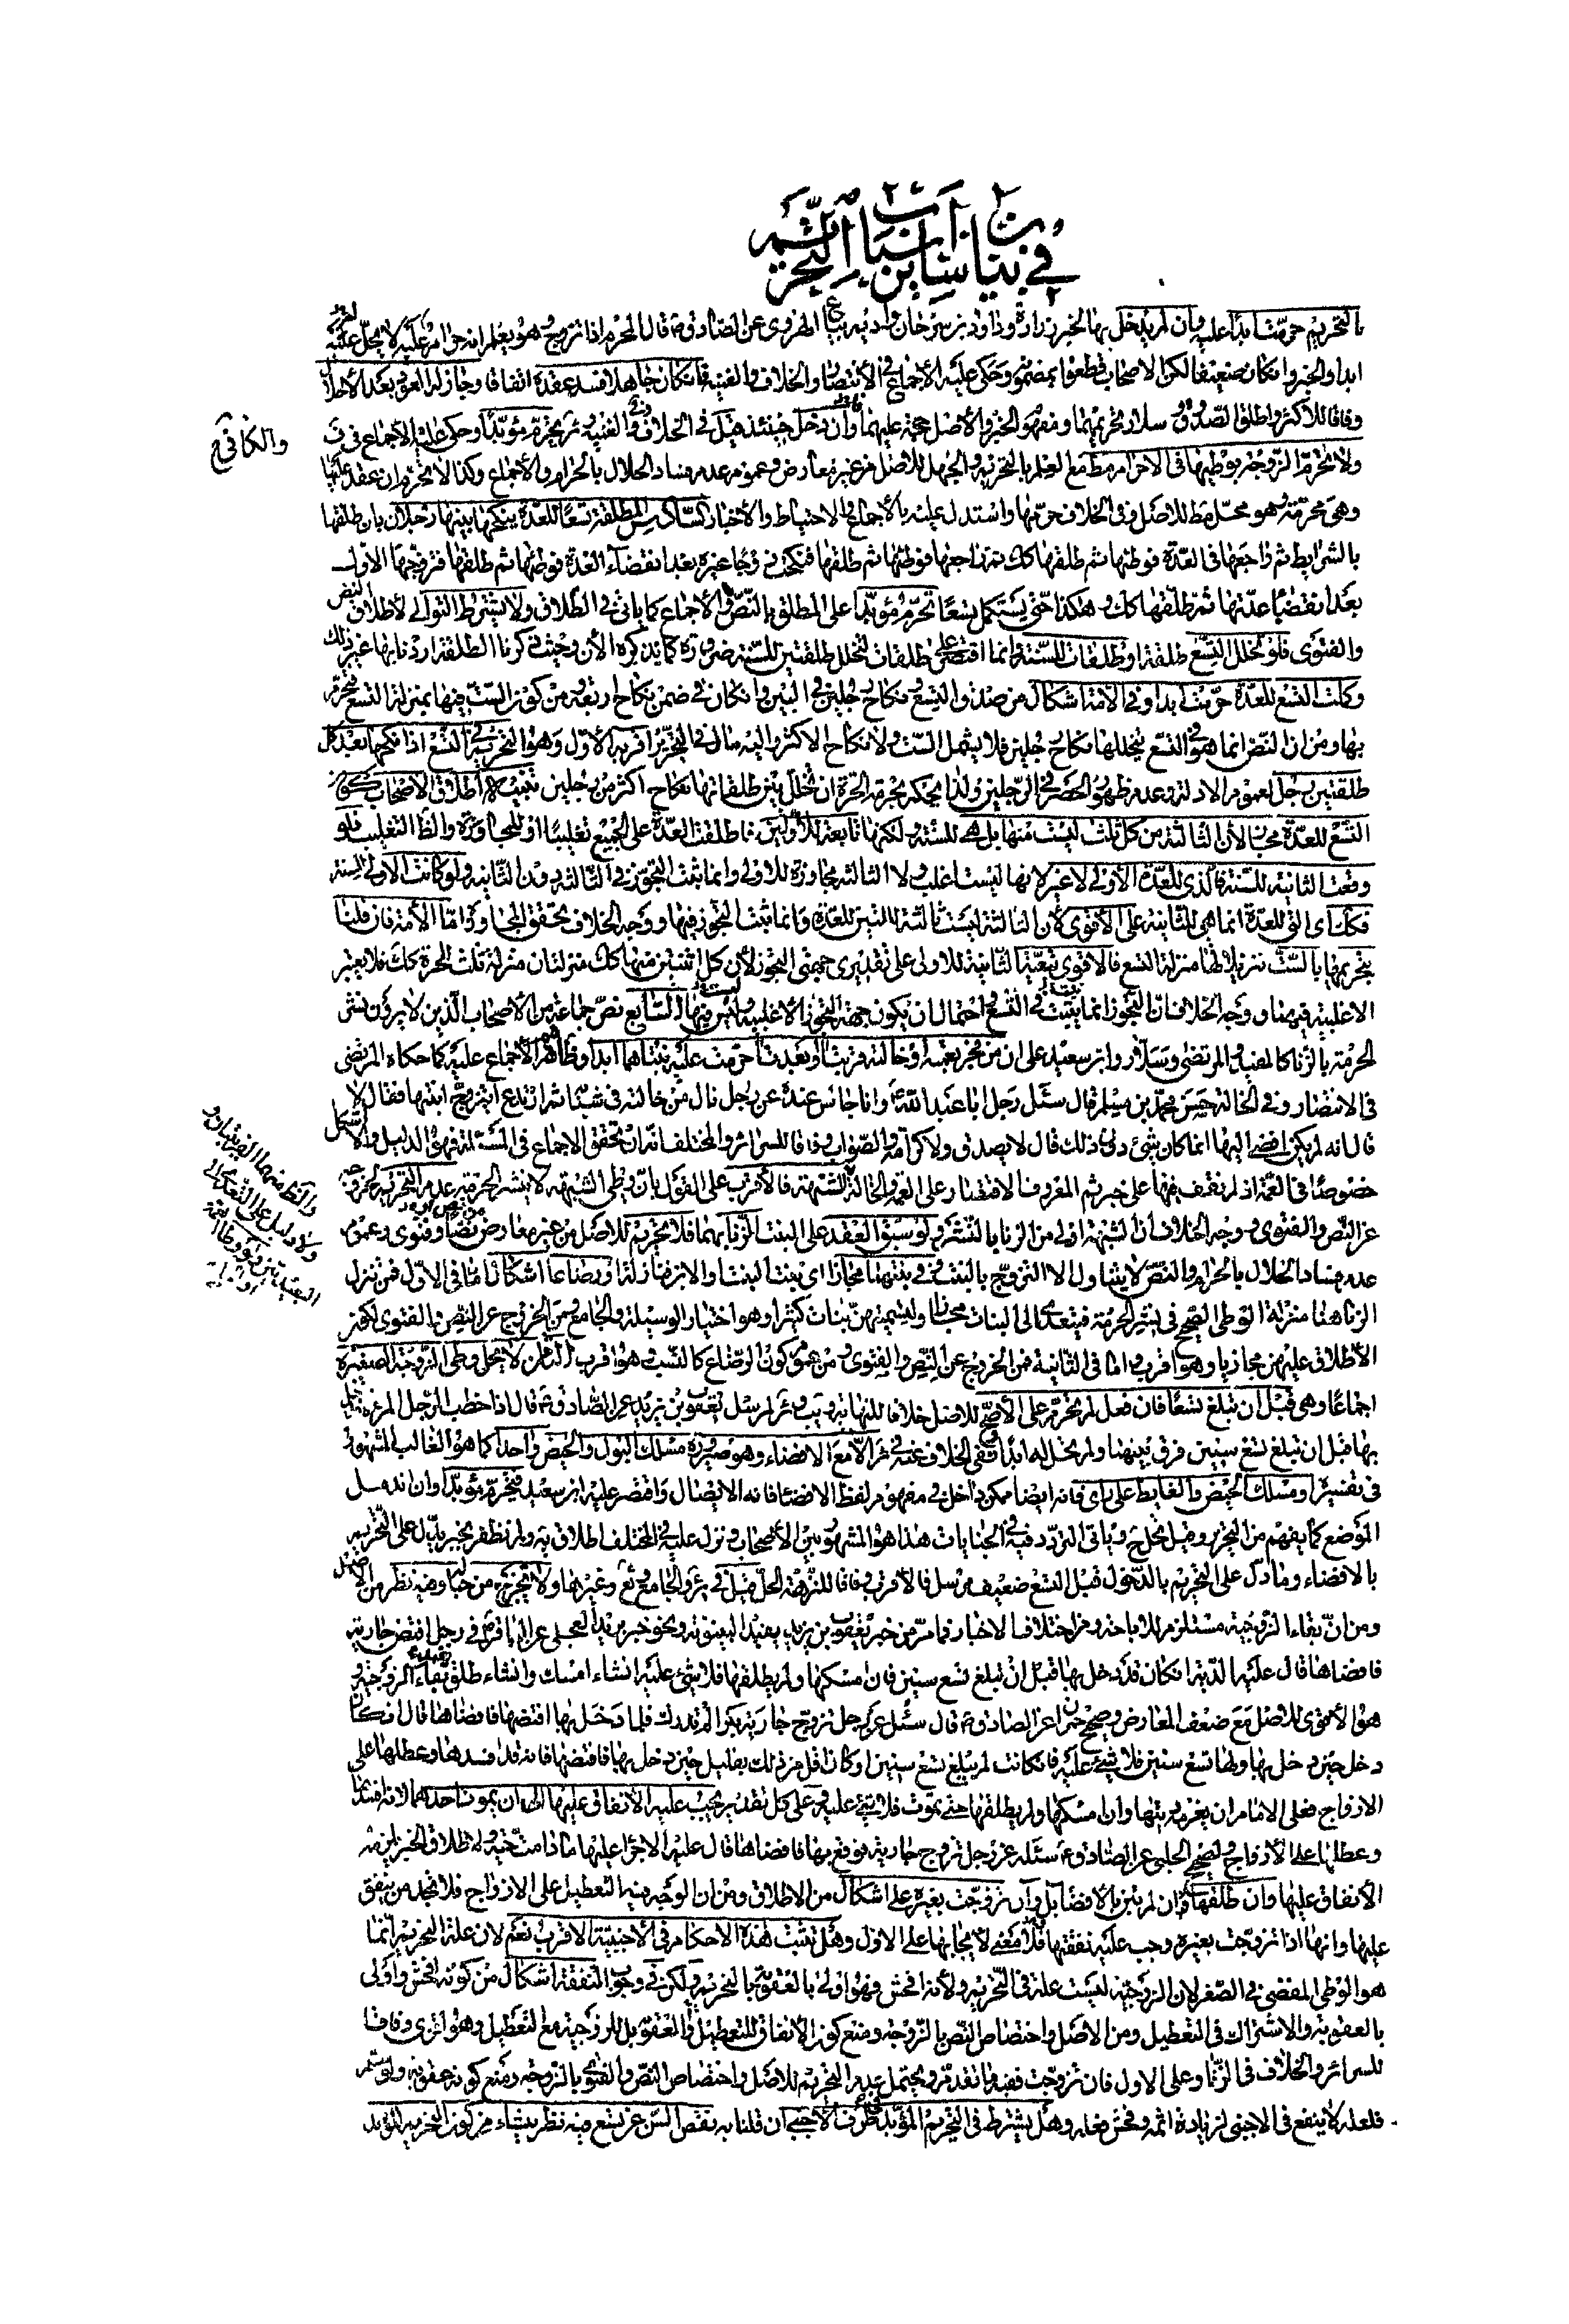 في بيان أسباب التحريم
بالتحريم حرمت أبدا عليه وإن لم يدخل بها لخبر زرارة وداود بن سرحان وأديم بياع الهروي عن الصادق ع قال المحرم إذا تزوج وهو يعلم أنه حرام عليه لا يحل عليه
ابدا والخبر وإن كان ضعيفا لكن الاصحاب قطعوا بمضمونه وحكى عليه الاجماع في الانتصار والخلاف والغنية فإن كان جاهلا فسد عقده اتفاقا وجاز له العود بعد الاحلال
وفاقا للاكثر واطلق الصدوق وسلار تحريمهما ومفهوم الخبر والأصل حجة عليهما وإن دخل حينئذ قيل في الخلاف والغنية ئر يحرم مؤبدا وحكى عليه الاجماع في ف
والكافي ح
ولا تحرم الزوجة بوطيها في الاحرام مط مع العلم بالتحريم والجهل للاصل من غير معارض وعموم عدم فساد الحلال بالحرام والاجماع وكذا لا تحرم إن عقد عليها
وهي محرمة وهو محل مط للاصل وفي الخلاف حرمتها واستدل عليه بالاجماع والاحتياط والاخبار السادس المطلقة تسعا للعدة ينكحها بينها رجلان بان طلقها
بالشرايط ثم راجعها في العدة فوطئها ثم طلقها كك ثم راجعها فوطئها ثم طلقها فنكحت زوجا غيره بعد انقضاء العدة فوطئها ثم طلقها فتزوجها الاول
بعد انقضاء عدتها ثم طلقها كك وهكذا حتى يستكمل تسعا تحرم مؤبدا على المطلق بالنص والاجماع كما ياتي في الطلاق ولا يشترط التوالي لاطلاق النص
والفتوى فلو تخلل التسع طلقة او طلقات للسنة وانما اقتصر على طلقات لتخلل طلقتين للسنة ضرورة كما يذكره الآن وحيث ذكرنا الطلقة اردنا بها غير ذلك
وكملت التسع للعدة حرمت ابدا وفي الامة اشكال من صدق التسع ونكاح رجلين في البين وإن كان في ضمن نكاح اربعة ومن كون الست فيها بمنزلة التسع فتحرم
بها ومن ان النص انما هو في التسع يتخللها نكاح رجلين فلا يشمل الست ولا نكاح الاكثر واليه مال في التحرير اقربه الاول وهو التحريم في التسع اذا نكحها بعد كل
طلقتين رجل لعموم الادلة وعدم ظهور الحصر في الرجلين ولذا يحكم بحرمة الحرة ان تخلل بين طلقاتها نكاح اكثر من رجلين تنبيه لا اطلاق الاصحاب كون
التسع للعدة مجاز لأن الثالثة من كل ثلث ليست منها بل هي للسنة ولكنها تابعة للاوليين فاطلقت العدة على الجميع تغليبا او للمجاورة والظ التغليب فلو
وقعت الثانية للسنة فالذي للعدة الاولى لا غير لانها ليست اغلب ولا الثالثة مجاورة للاولى وانما ثبت التجوز في الثالثة دون الثانية ولو كانت الاولى للسنة
فكك اى التي للعدة انما هي الثانية على الاقوى لأن الثالثة ليست ثالثة لاثنتين للعدة وانما ثبت التجوز فيها ووجه الخلاف تحقق المجاورة اما الأمة فان قلنا
بتحريمها بالست تنزيلا لها منزلة التسع فالاقوى تبعية الثانية للاولى على تقديري جهتي التجوز لأن كل اثنتين منها كك منزلتان منزلة ثلث الحرة كك فلا يعتبر
الاغلبية فيهما ووجه الخلاف ان التجوز انما يثبت في التسع واحتمال ان يكون جهة التجوز الاغلبية وليس فيها السابع نص جماعة من الاصحاب الذين لا يرون نشر
الحرمة بالزنا كالمفيد والمرتضى وسلار وابن سعيد على ان من فجر بعمته او خالته قربتا او بعدتا حرمت عليه بنتاهما ابدا وظاهرهم الاجماع عليه كما حكاه المرتضى
في الانتصار وفي الخالة حسن محمد بن مسلم قال سئل رجل ابا عبد الله ع وانا جالس عنده عن رجل نال من خالته في شبابه ثم ارتدع ايتزوج ابنتها فقال لا
قال انه لم يكن افضى اليها انما كان شيئ دون ذلك قال لا يصدق ولا كرامة والصواب وفاقا للسرائر والمختلف انه ان تحقق الاجماع في المسئلة فهو الدليل والا اشكل
خصوصا في العمة اذ لم نقف فيها على خبر ثم المعروف الاقتصار على العمة والخالة للشبهة فالاقرب على القول بان وطى الشبهة لا ينشر الحرمة عدم التحريم لخروجه
عن النص والفتوى ووجه الخلاف ان الشبهة اولى من الزنا بالنشر ولو سبق العقد على البنت الزنا بهما فلا تحريم للاصل من غير معارض نصا وفتوى وعموم
عدم فساد الحلال بالحرام والنص لا يتناول الا التزوج بالبنت وفي بنتهما مجازا اى بنت البنت والابن فنازلة ورضاعا اشكال اما في الاول فمن تنزل
الزنا هنا منزلة الوطى الصحيح في نشر الحرمة فيتعدى الى البنات مجازا ولتسميتهن بنات كثيرا وهو اختيار الوسيلة والجامع ومن الخروج عن النص والفتوى لكون
الاطلاق عليهن مجازيا وهو اقرب واما في الثانية فمن الخروج عن النص والفتوى ومن عموم كون الرضاع كالنسب وهو اقرب الثامن لا يحل وطى الزوجة الصغيرة
اجماعا وهي قبل ان تبلغ تسعا فان فعل لم تحرم على الأصح للاصل خلافا للنهاية ويب وئر لمرسل يعقوب بن يزيد عن الصادق ع قال اذا خطب الرجل المرئة فدخل
بها قبل ان تبلغ تسع سنين فرق بينهما ولم تحل له ابدا ونفى الخلاف عنه في ئر الا مع الافضاء وهو صيرورة مسلك البول والحيض واحدا كما هو الغالب المشهور
في تفسيره او مسلك الحيض والغايط على راى فانه ايضا ممكن داخل في مفهوم لفظ الافضاء فانه الايصال واقتصر عليه ابن سعيد فتحرم مؤبدا وان اندمل
الموضع كما يفهم من التحرير وقيل تحل ح وياتي التردد فيه في الجنايات هذا هو المشهور بين الأصحاب ونزل عليه في المختلف اطلاق يه ولم نظفر بخبر يدل على التحريم
بالافضاء وما دل على التحريم بالدخول قبل التسع ضعيف مرسل فالاقرب وفاقا للنزهة الحل قيل في ئر والجامع وئع وغيرها ولا تخرج من حباله وفيه نظر من الاصل
ومن ان بقاء الزوجية مستلزم للاباحة ومن اختلاف الاخبار فما مر من خبر يعقوب بن يزيد يفيد البينونة ونحو خبر بريد العجلي عن الباقر ع في رجل افتض جاريته
فافضاها قال عليه الدية ان كان قد دخل بها قبل ان تبلغ تسع سنين فان امسكها ولم يطلقها فلا شئ عليه ان شاء امسك وان شاء طلق بقاء الزوجية و
هو الأقوى للاصل مع ضعف المعارض وصحيح حمران عن الصادق ع قال سئل عن رجل تزوج جارية بكرا لم تدرك فلما دخل بها افتضها فافضاها قال ان كان
دخل حين دخل بها ولها تسع سنين فلا شيئ عليه وان كانت لم تبلغ تسع سنين او كان اقل من ذلك بقليل حين دخل بها فافتضها فانه قد افسدها وعطلها على
الازواج فعلى الامام ان يغرمه ديتها وان امسكها ولم يطلقها حتى تموت فلا شيئ عليه وعلى كل تقدير يجب عليه الانفاق عليها الى ان يموت احدهما لانه افسدها
وعطلها على الازواج ولصحيح الحلبي عن الصادق ع سئله عن رجل تزوج جارية فوقع بها فافضاها قال عليه الاجراء عليها ما دامت حية ولاطلاق الخبر يلزمه
الأنفاق عليها وان طلقها وان لم تبن بالافضاء بل وان تزوجت بغيره على اشكال من الاطلاق ومن ان الوجه فيه التعطيل على الازواج فلا تجد من ينفق
عليها وانها اذا تزوجت بغيره وجب عليه نفقتها فلا معنى لايجابها على الاول وهل تثبت هذه الاحكام في الأجنبية الاقرب نعم لان علة التحريم انما
هو الوطى المفضى في الصغر لان الزوجية ليست علة في التحريم ولأنه افحش فهو اولى بالعقوبة بالتحريم ولكن في وجوب النفقة اشكال من كونه افحش واولى
بالعقوبة والاشتراك في التعطيل ومن الاصل واختصاص النص بالزوجة ومنع كون الانفاق للتعطيل والعقوبة بل للزوجية مع التعطيل وهو اقوى وفاقا
للسرائر والخلاف في الزنا وعلى الاول فان تزوجت ففيه ما تقدم ويحتمل عدم التحريم للاصل واختصاص النص والفتوى بالزوجة ومنع كونه عقوبة ولو سلم
فلعله لا ينفع في الاجنبي لزيادة اثمه وفحش فعله وهل يشترط في التحريم المؤبد في طرف الاجنبي ان قلنا به نقص السن عن تسع فيه نظر ينشاء من كون التحريم المؤبد